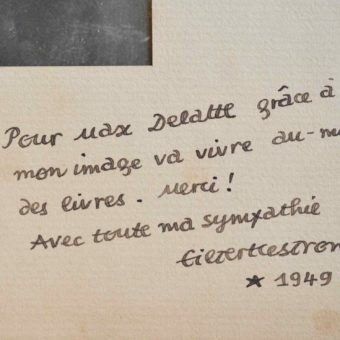 Pour Max Delatte grâce à
mon image va vivre au-m
des livres. Merci!
Avec toute ma sympathie
★ 1949